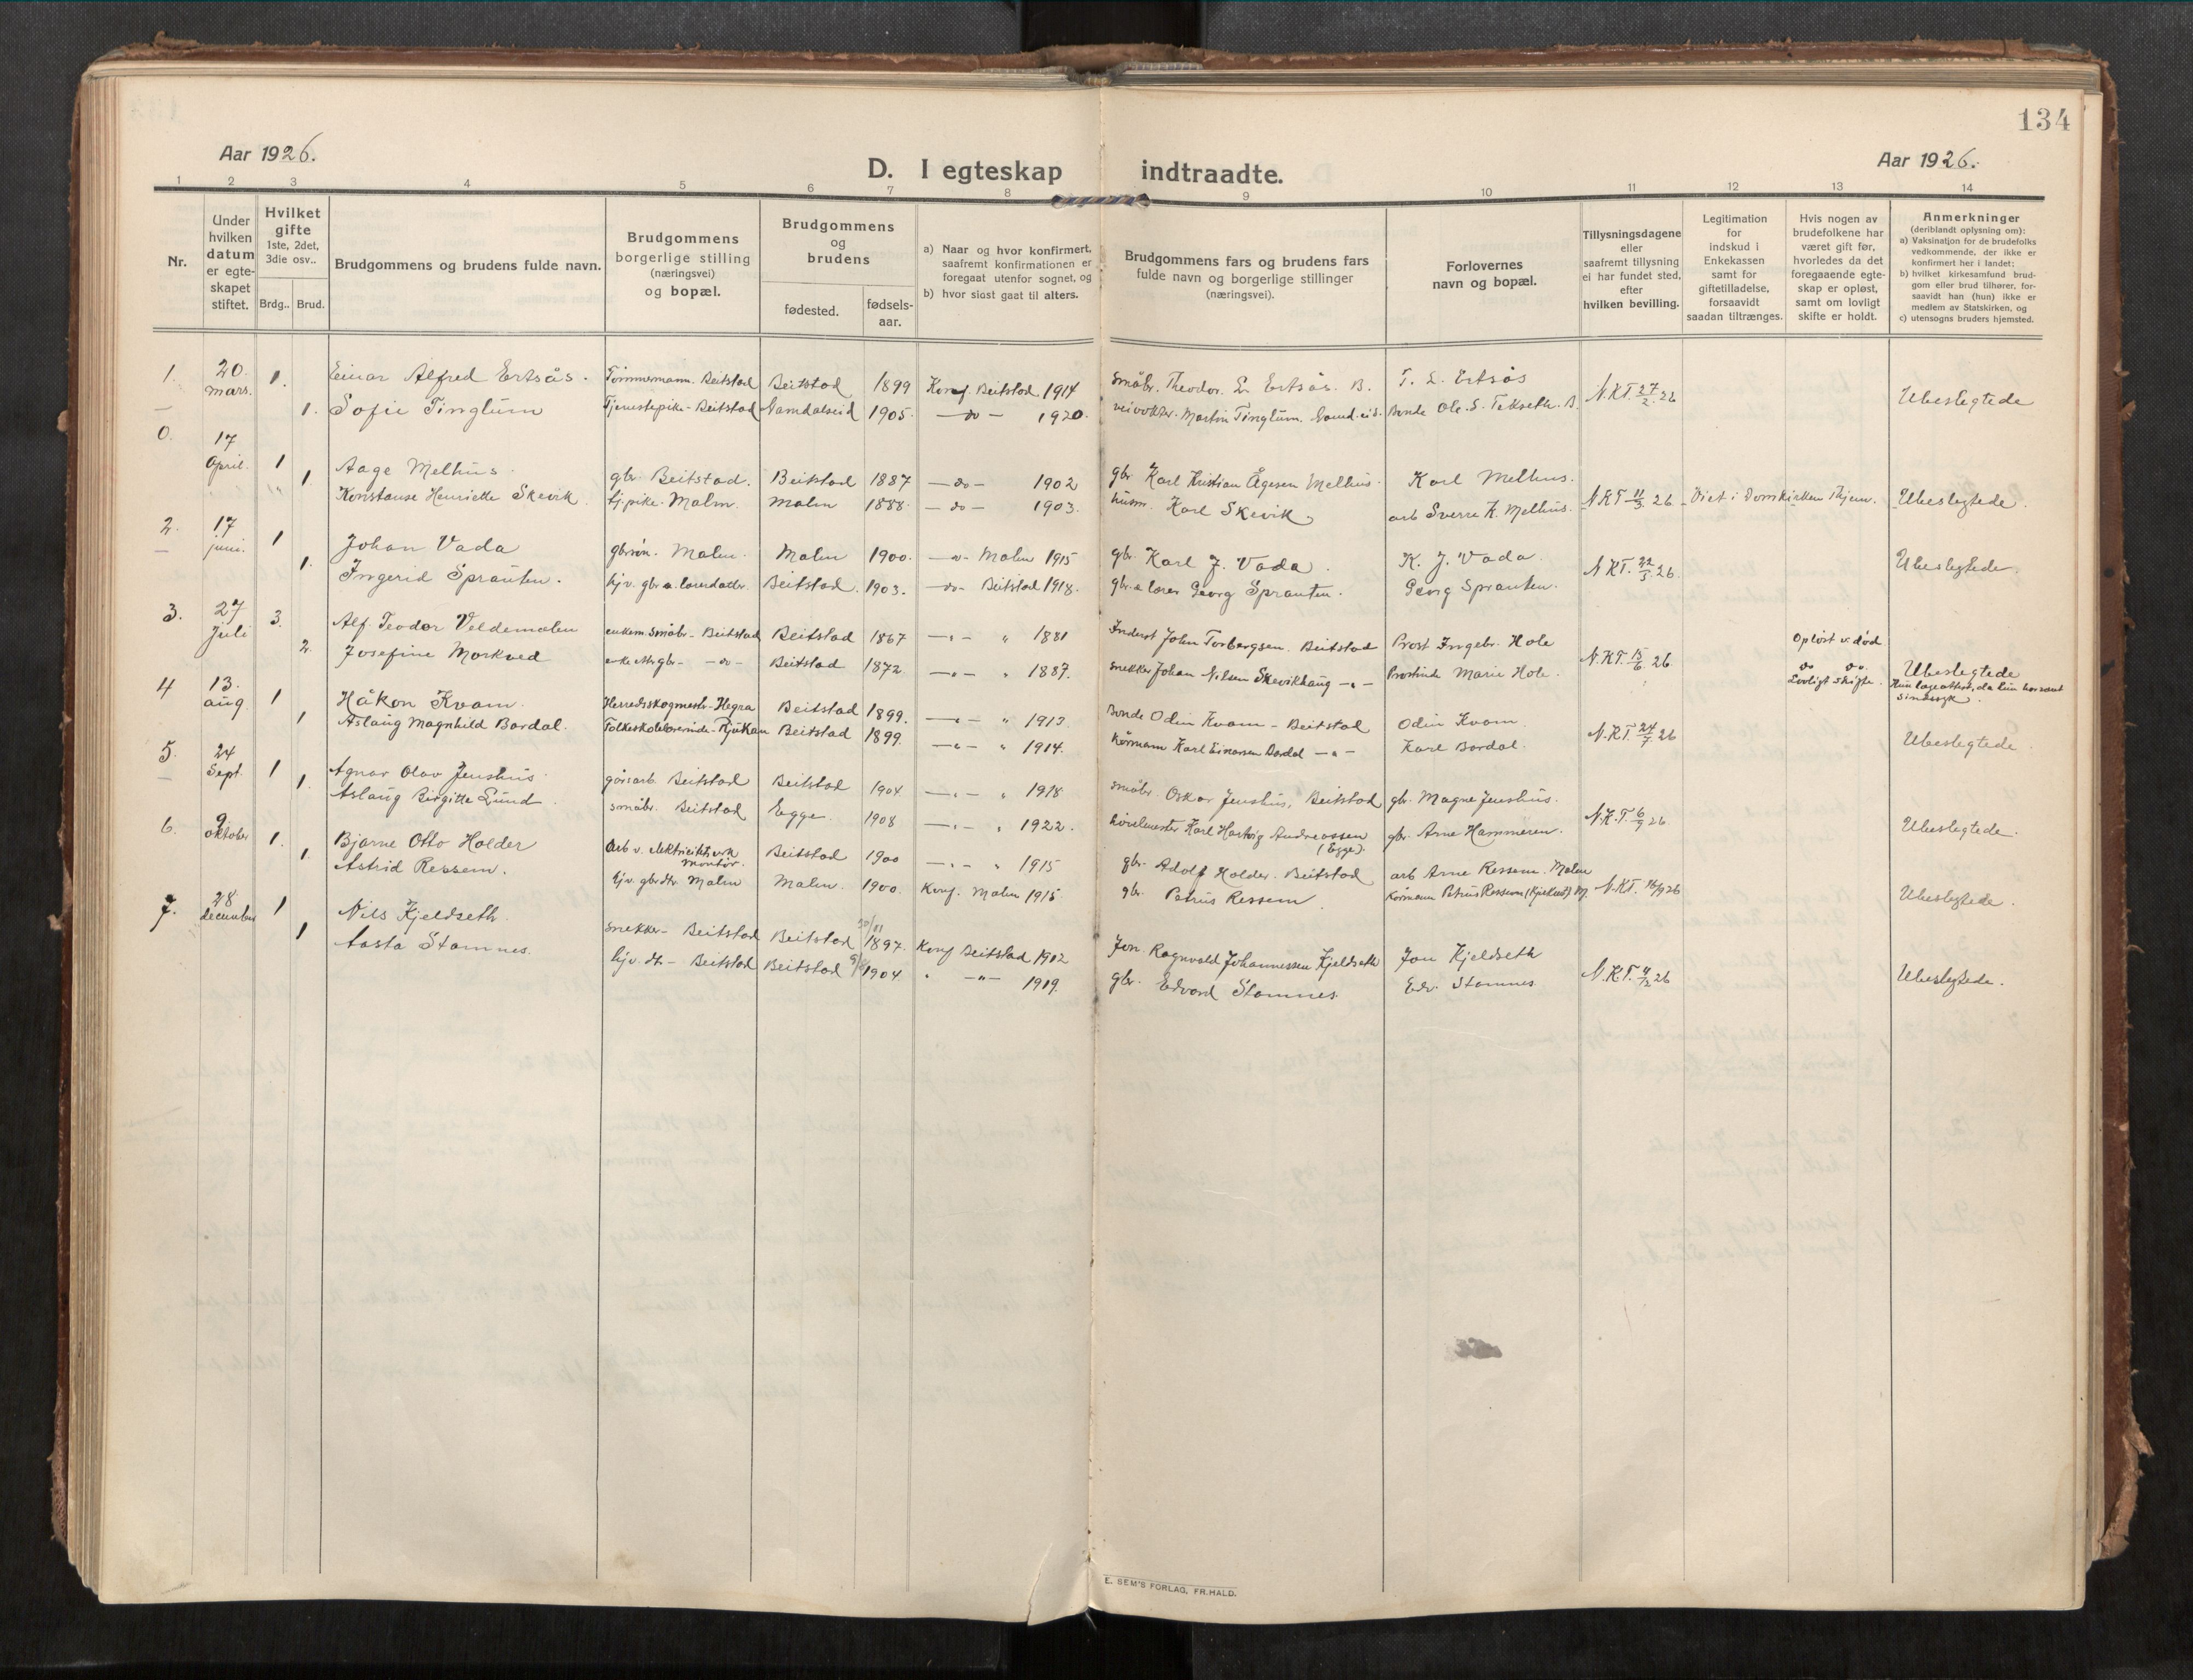 134
Aar 1926.
D. I egteskap indtraadte.
Aar 1926.
1 2 3 4 5 6 7 8 9 10 11 12 13 14
Nr.
Under hvilken datum er egte-skapet stiftet.
Hvilket gifte
1ste, 2det, 3die osv..
Brdg.. Brud.
Brudgommens og brudens fulde navn.
Brudgommens borgerlige stilling (næringsvei) og bopæl.
Brudgommens og brudens
fødested. fødsels-aar.
a) Naar og hvor konfirmert, saafremt konfirmationen er foregaat utenfor sognet, og
b) hvor sidst gaat til alters.
Brudgommens fars og brudens fars fulde navn og borgerlige stillinger (næringsvei).
Forlovernes navn og bopæl.
Tillysningsdagene eller saafremt tillysning ei har fundet sted, efter hvilken bevilling.
Legitimation for indskud i Enkekassen samt for giftetilladelse, forsaavidt saadan tiltrænges.
Hvis nogen av brudefolkene har været gift før, hvorledes da det foregaaende egte-skap er opløst, samt om lovligt skifte er holdt.
Anmerkninger
(deriblandt oplysning om):
a) Vaksination for de brudefolks vedkommende, der ikke er konfirmert her i landet;
b) hvilket kirkesamfund brud-gom eller brud tilhører, for-saavidt han (hun) ikke er medlem av Statskirken, og
c) utensogns bruders hjemsted.
1. 20. mars. 1. Einar Alfred Ertsås. Tømmermann. Beitstad Beitstad 1899 Konf. Beitstad 1914 småbr. Theodor. L. Ertsås. B. T. L. Ertsås N.KT. 27/2 26 Ubeslegtede
— 1. Sofie Tinglum Tjenestepike - Beitstad Namdalseid 1905. — do — 1920. veivokter. Martin Tinglum. Bonde Ole. S. Tekseth. B
0. 17 April. 1 Aage Melhus. gbr. Beitstad. Beitstad 1887 — do — 1902 gbr. Karl Kristian Ågesen Melhus. Karl Melhus.
1. Konstanse Henriette Skevik tj.pike. Malm. Malm 1888. — do — 1903. husm. Karl Skevik arb Sverre K. Melhus. N.K.T 11/3 26 Viet i Domkirken Thjem. Ubeslegtede.
2. 17 juni. 1 Johan Vada gbrsøn. Malm. Malm 1900. — do - Malm 1915 gbr. Karl J. Vada. K. J. Vada. N KT. 22/5 26. Ubeslegtede.
— 1. Ingerid Sprauten. hjv. gbr. a. lærerdatter. Beitstad. 1903. — do - Beitstad 1918. gbr. a lærer Georg Sprauten. Georg Sprauten.
3. 27 Juli 3. Alf. Teodor Veldemalen enkem. småbr. - Beitstad Beitstad 1867 — " — " 1881 Inderst John Torbergsen. Beitstad Prost Ingebr. Hole Opløst v. død
2. Josefine Morkved enke etter gbr - — do — Beitstad 1872. — " — " 1887. snekker Johan Nilsen Skevikhaug — " — Prostinde Marie Hole. N.KT. 15/6 26 do do. Lovligt skifte. Ubeslegtede
Hun lægeattest, da hun har vært sindssyk.
4 13. aug. 1 Håkon Kvam. Herredsskogmester - Hegra Beitstad 1899. — " — " 1913 Bonde Odin Kvam - Beitstad Odin Kvam.
1 Aslaug Magnhild Bardal. Folkeskolelærerinde - Rjukan Beitstad 1899. — " — " 1914. Kørmann Karl Einarsen Bardal — " — Karl Bardal. N.KT. 24/7 26 Ubeslegtede
5. 24 Sept. 1 Agnar Olav Jenshus. gårdsarb. Beitstad Beitstad 1904 — " — " 1918 småbr. Oskar Jenshus, Beitstad gbr. Magne Jenshus.
— 1. Aslaug Birgitte Lund. småbr. Beitstad Egge. 1908 — " — " 1922. Karl Hartvig Andreassen (Egge). gbr. Arne Hammeren. N.K.T. 6/9 26 Ubeslegtede.
6. 9. oktober 1. Bjarne Otto Holder Arb v. elektricitetsverk montør. Beitstad 1900 — " — " 1915 gbr. Adolf Holder. Beitstad arb Arne Ressem. Malm
1. Astrid Ressem. hjv. gbrdtr. Malm Malm. 1900. Konf. Malm 1915 gbr. Petrus Ressem. Kørmann Petrus Ressem M. N.KT. 16/9 26 Ubeslegtede.
7. 28 december 1 Nils Kjeldseth. snekker - Beitstad Beitstad 1897. Konf Beitstad 1902 Jon. Ragnvald Johannessen Kjeldseth Jon Kjeldseth
1 Aasta Stamnes. hjv. dtr - Beitstad Beitstad 1904. " — " — 1919. gbr. Edvard Stamnes. Edv. Stamnes. N.K.T. 4/2 26 Ubeslegtede.
E. SEM'S FORLAG, FR.HALD.